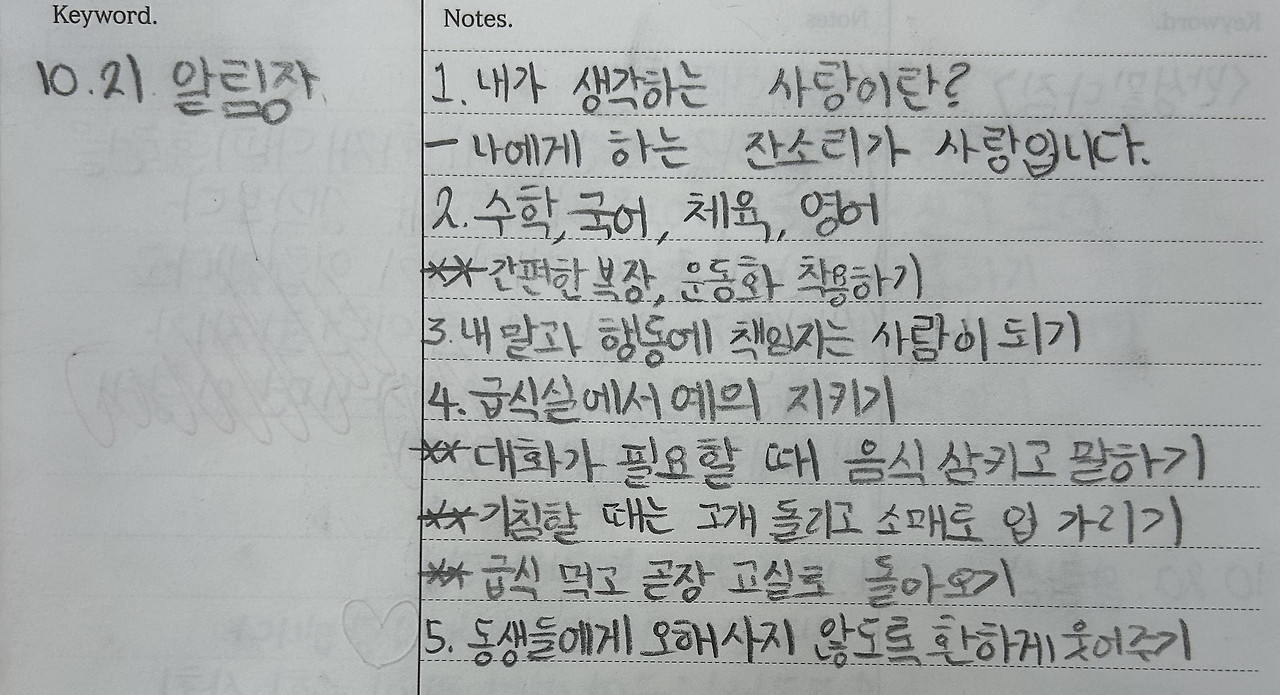 Keyword.
Notes.
10.21. 알림장
1. 내가 생각하는 사랑이란?
- 나에게 하는 잔소리가 사랑입니다.
2. 수학, 국어, 체육, 영어
** 간편한 복장, 운동화 착용하기
3. 내 말과 행동에 책임지는 사람이 되기
4. 급식실에서 예의 지키기
** 대화가 필요할 때 음식 삼키고 말하기
** 기침할 때는 고개 돌리고 소매로 입 가리기
** 급식 먹고 곧장 교실로 돌아오기
5. 동생들에게 오해사지 않도록 환하게 웃어주기